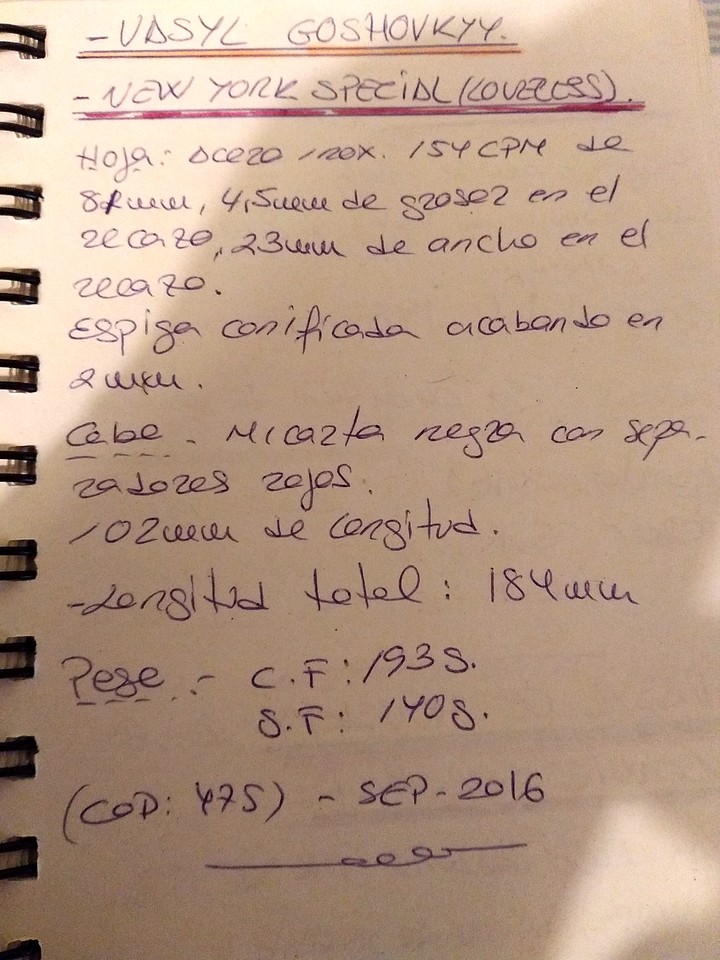 - VASYL GOSHOVKYY.
- NEW YORK SPECIAL (LOVELESS).
Hoja: Acero inox. 154 CPM de
82mm, 4,5mm de grosor en el
recazo, 23mm de ancho en el
recazo.
Espiga conificada acabando en
2mm.
Cabo - Micarta negra con sepa-
radores rojos.
102mm de longitud.
- Longitud total: 184mm
Peso.- C.F: 193g.
S.F: 140g.
(COD: 475) - SEP-2016